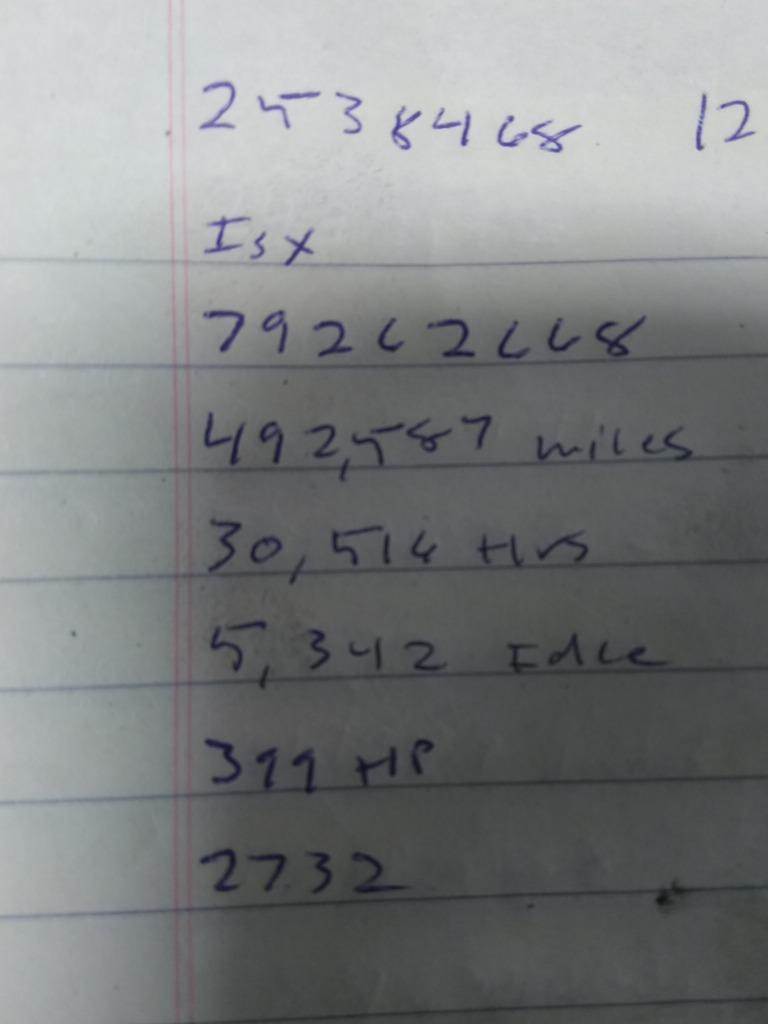 2538468 12
Isx
79262668
492,587 miles
30,516 Hrs
5,342 Idle
399 HP
2732